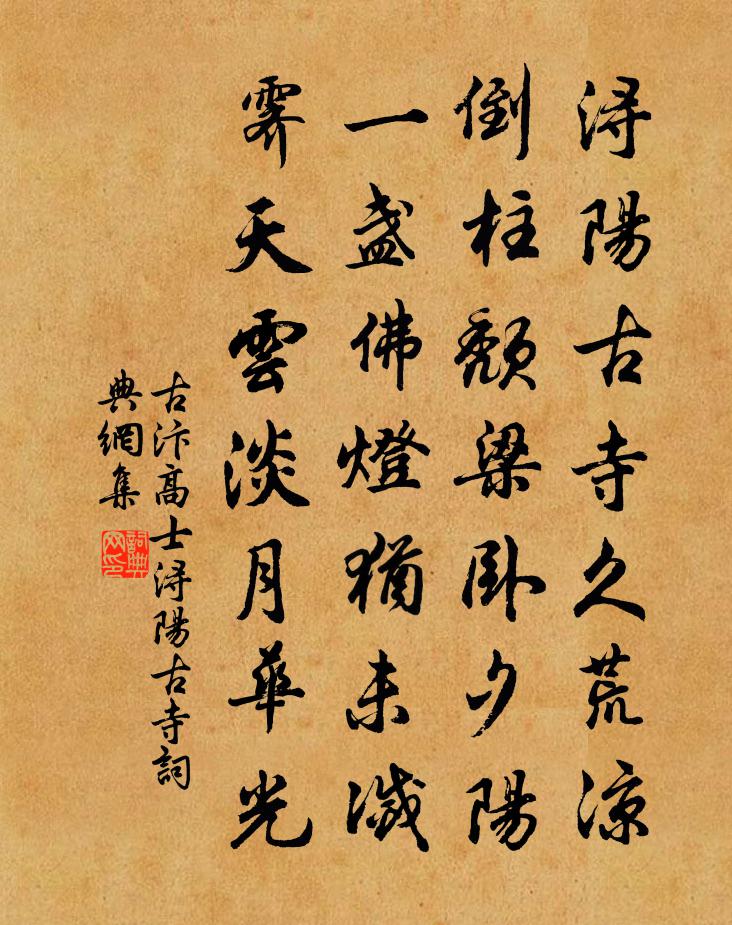 浔陽古寺久荒涼
倒柱頹梁臥夕陽
一盏佛燈猶未滅
霁天雲淡月華光
古汴高士浔陽古寺詞
典網集
詞典网印